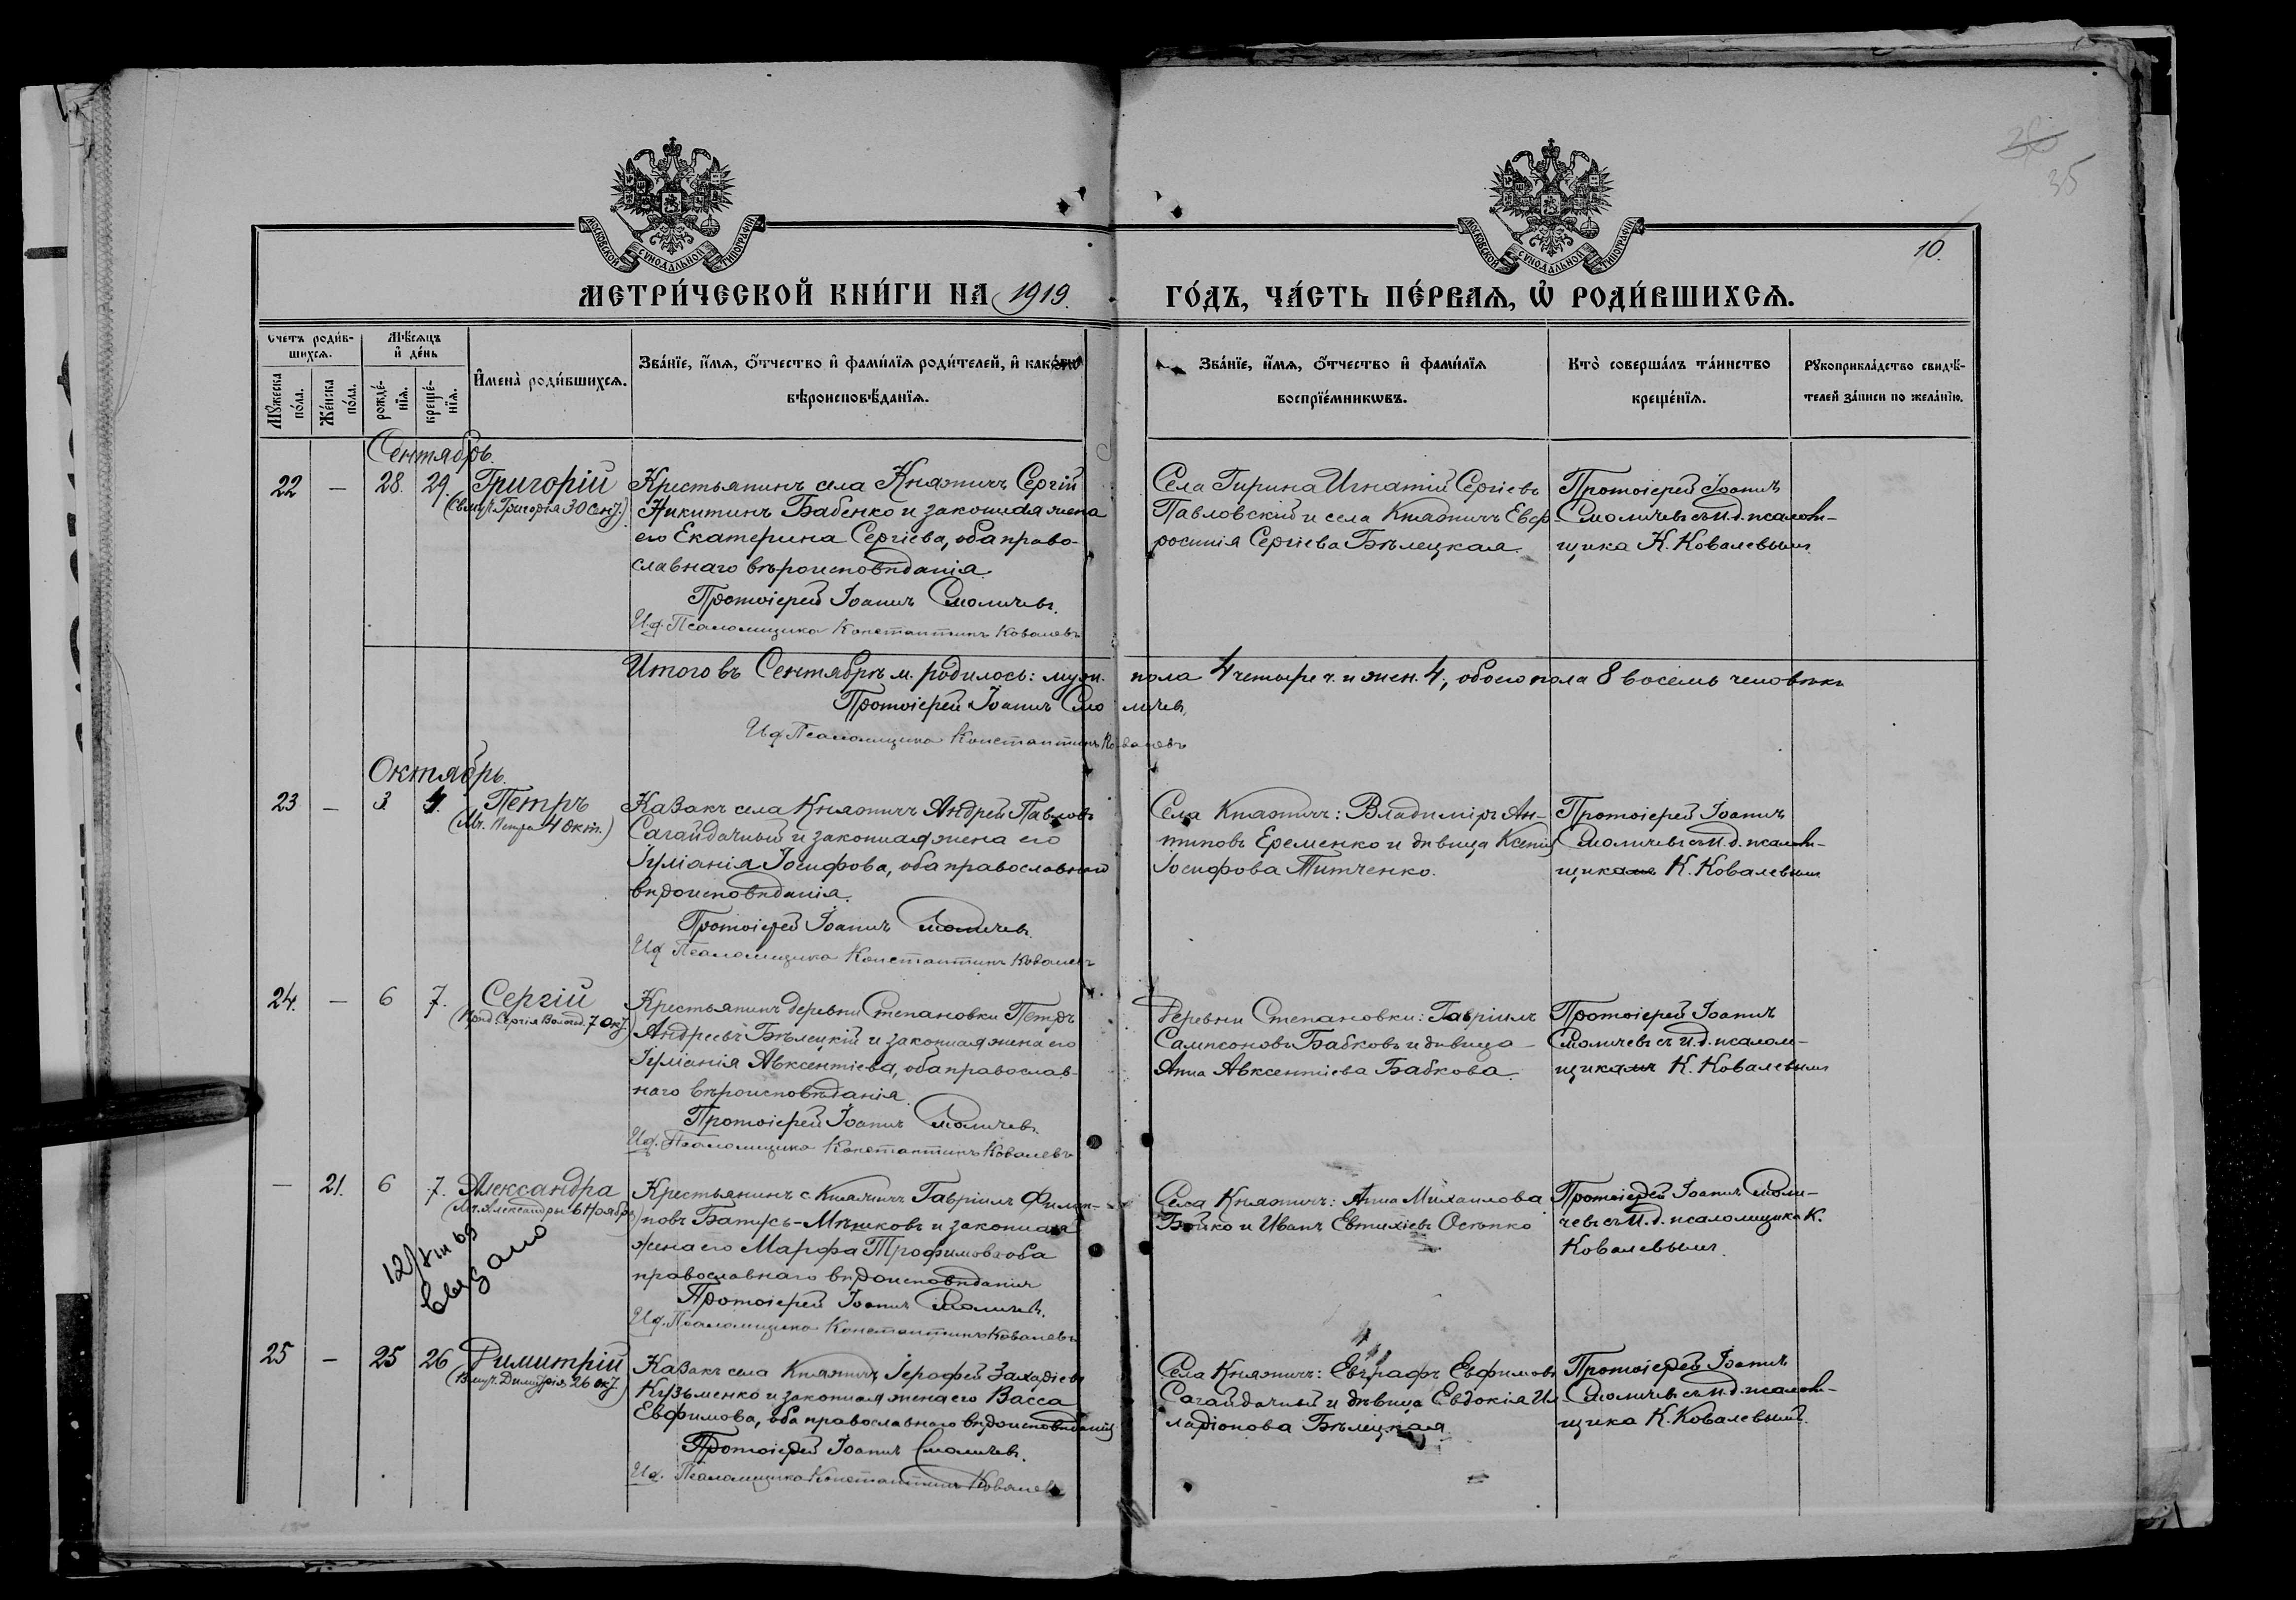 36
35
10.
МОСКОВСКОЙ СѴНОДАЛЬНОЙ ТИПОГРАФІИ
МОСКОВСКОЙ СѴНОДАЛЬНОЙ ТИПОГРАФІИ
МЕТРИ́ЧЕСКОЙ КНИ́ГИ НА 1919. ГО́ДЪ, ЧА́СТЬ ПЕ́РВАѦ, Ѽ РОДИ́ВШИХСѦ.
Счетъ роди́в-
шихсѧ.
Мꙋжеска
по́ла.
Же́нска
по́ла.
Мѣ́сѧцъ
и҆ де́нь
рожде́-
нїѧ.
креще́-
нїѧ.
И҆мена̀ роди́вшихсѧ.
Зва́нїе, и҆́мѧ, ѻ҆́тчество и҆ фами́лїѧ роди́телей, и҆ како́гѡ
вѣроисповѣ́данїѧ.
Зва́нїе, и҆́мѧ, ѻ҆́тчество и҆ фами́лїѧ
воспрїе́мникѡвъ.
Кто̀ соверша́лъ та́инство
креще́нїѧ.
Рꙋкоприкла́дство свидѣ́-
телей за́писи по жела́нїю.
Сентябрь.
22 — 28. 29. Григорій
(Свмч. Григорія 30 Сент.)
Крестьянинъ села Княжичъ Сергій
Никитинъ Бабенко и законная жена
его Екатерина Сергіева, оба право-
славнаго вѣроисповѣданія.
Протоіерей Іоаннъ Смоличевъ.
И.д. Псаломщика Константинъ Ковалевъ
Села Гирина Игнатій Сергіевъ
Павловскій и села Княжичъ Евф-
росинія Сергіева Бѣлецкая.
Протоіерей Іоаннъ
Смоличевъ съ и.д. псалом-
щика К. Ковалевымъ.
Итого въ Сентябрѣ м. родилось: муж. пола 4 четыре ч. и жен. 4, обоего пола 8 восемь человѣкъ
Протоіерей Іоаннъ Смоличевъ.
Ид. Псаломщика Константинъ Ковалевъ
Октябрь.
23 — 3 4. Петръ
(Мч. Петра 4 Окт.)
Казакъ села Княжичъ Андрей Павловъ
Сагайдачный и законная жена его
Іуліанія Іосифова, оба православнаго
вѣроисповѣданія.
Протоіерей Іоаннъ Смоличевъ.
Ид Псаломщика Константинъ Ковалевъ
Села Княжичъ: Владиміръ Ан-
типовъ Еременко и дѣвица Ксенія
Іосифова Титченко.
Протоіерей Іоаннъ
Смоличевъ съ и.д. псалом-
щика К. Ковалевымъ
24. — 6 7. Сергій
(Препд. Сергія Волог. 7 Окт.)
Крестьянинъ деревни Степановки Петръ
Андреевъ Бѣлецкій и законная жена его
Іуліанія Авксентіева, оба православ-
наго вѣроисповѣданія.
Протоіерей Іоаннъ Смоличевъ.
Ид. Псаломщика Константинъ Ковалевъ
Деревни Степановки: Гавріилъ
Сампсоновъ Бабковъ и дѣвица
Анна Авксентіева Бабкова.
Протоіерей Іоаннъ
Смоличевъ съ и.д. псалом-
щика К. Ковалевымъ
— 21. 6 7. Александра
(Мч. Александры 6 Ноября)
12/VIII 69
Крестьянинъ с. Княжичъ Гавріилъ Филип-
повъ -Мѣшковъ и законная
жена его Марфа Трофимова оба
православнаго вѣроисповѣданія
Протоіерей Іоаннъ Смоличевъ.
Ид. Псаломщика Константинъ Ковалевъ
Села Княжичъ: Анна Михаилова
Бойко и Иванъ Евтихіевъ Осѣпко
Протоіерей Іоаннъ Смоли-
чевъ съ и.д. псаломщика К.
Ковалевымъ.
25 — 25 26 Димитрій
(Вмуч. Димитрія 26 окт.)
Казакъ села Княжичъ Іерофей Захаріевъ
Кузьменко и законная жена его Васса
Евфимова, оба православнаго вѣроисповѣданія
Протоіерей Іоаннъ Смоличевъ.
Ид. Псаломщика Константинъ Ковалевъ
Села Княжичъ: Евграфъ Евфимовъ
Сагайдачный и дѣвица Евдокія Ил-
ларіонова Бѣлецкая.
Протоіерей Іоаннъ
Смоличевъ съ и.д. псалом-
щика К. Ковалевымъ.